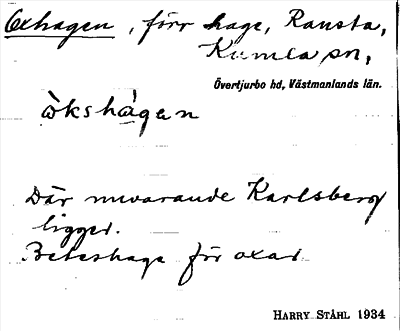 Oxhagen, förr hage, Ransta,
Kumla sn,
Övertjurbo hd, Västmanlands län.
òkshàgen
Där nuvarande Karlsberg
ligger.
Beteshage för oxar
HARRY STÅHL 1934